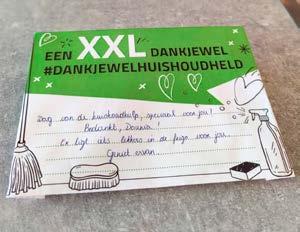 EEN XXL DANKJEWEL
#DANKJEWELHUISHOUDHELD
Dag van de huishoudhulp, speciaal voor jou!
Bedankt, Dounia!
Er ligt iets lekkers in de frigo voor jou.
Geniet ervan.